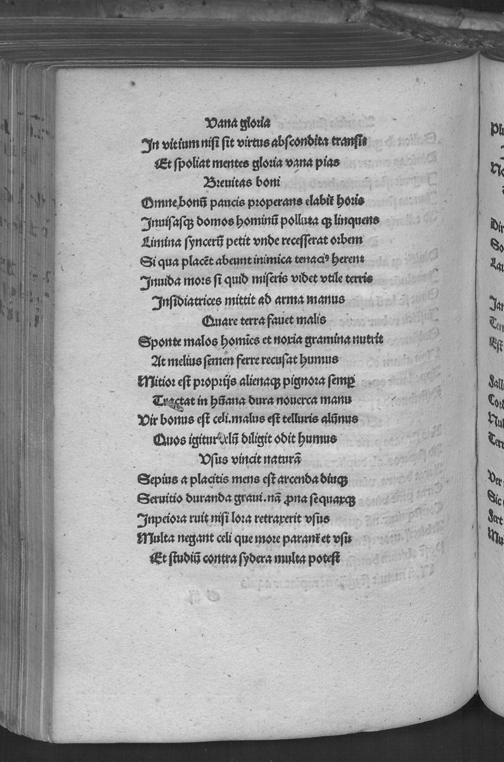 Vana gloria
In vitium nisi sit virtus abscondita transis
Et spoliat mentes gloria vana pias
Breuitas boni
Omne bonū paucis properans elabit᷑ horis
Inuisasqꝫ domos hominū polluta qꝫ linquens
Limina syncerū petit vnde recesserat orbem
Si qua placēt abeunt inimica tenaciꝰ herent
Inuida mors si quid miseris videt vtile terris
Insidiatrices mittit ad arma manus
Quare terra fauet malis
Sponte malos homīes et noxia gramina nutrit
At melius semen ferre recusat humus
Mitior est proprijs alienaqꝫ pignora semꝑ
Tractat in hūana dura nouerca manu
Vir bonus est celi. malus est telluris alūnus
Quos igitur celū diligit odit humus
Vsus vincit naturā
Sepius a placitis mens est arcenda diuqꝫ
Seruitio duranda graui. nā ꝓna sequaxqꝫ
In peiora ruit nisi lora retraxerit vsus
Multa negant celi que more parant᷑ et vsu
Et studiū contra sydera multa potest